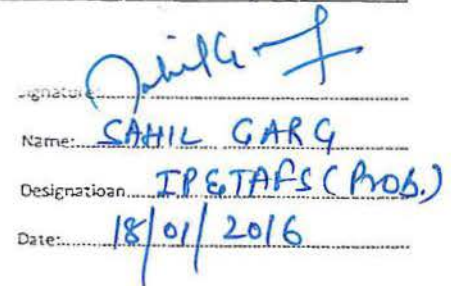 Signature:
Name: SAHIL GARG
Designatioan IP&TAFS (PROB.)
Date: 18/01/2016